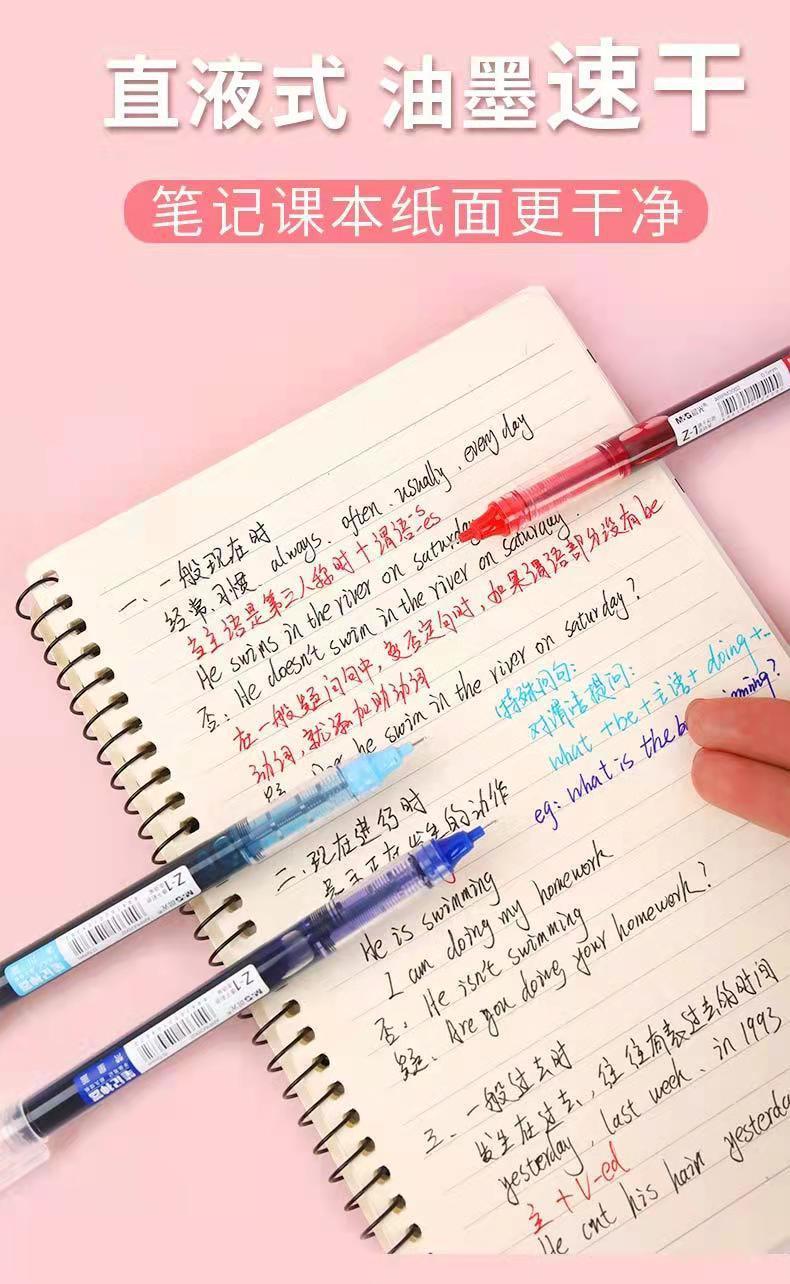 直液式 油墨速干
笔记课本纸面更干净
一、一般现在时
经常、习惯 always. often. usually. every day
当主语是第三人称时+谓语-s -es
He swims in the river on saturday
否: He doesn't swim in the river on saturday.
在一般疑问句中,变否定句时,如果谓语部分没有be
动词,就添加助动词
he swim in the river on saturday?
特殊问句:
对谓语提问:
what +be+主语+ doing+
eg: what is the
二、现在进行时
正在发生的动作
He is swimming
I am doing my homework
否. He isn't swimming
疑. Are you doing your homework?
三、一般过去时
发生在过去, 往往有表过去的时间
yesterday, last week, in 1993
主 + V-ed
He cut his hair yesterday
M&G 晨光
Z-1
M&G 晨光
Z-1
笔记神器
M&G 晨光
Z-1
笔记神器